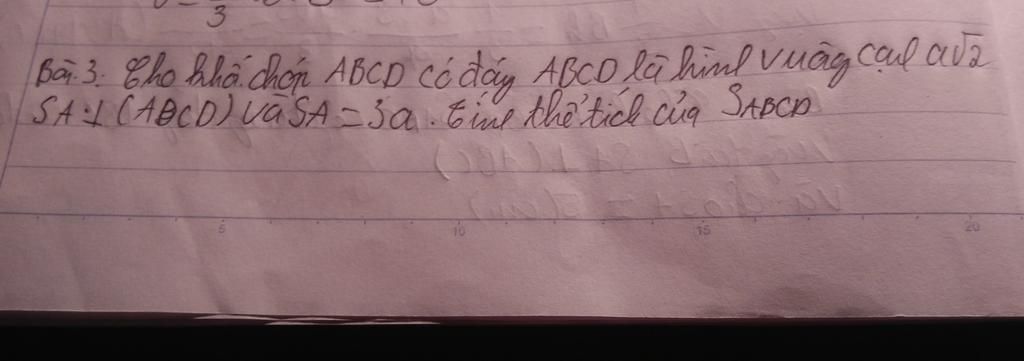 3
Bài 3. Cho khối chóp ABCD có đáy ABCD là hình vuông cạnh a√2
SA ⊥ (ABCD) và SA = 3a. Tính thể tích của SABCD
5 10 15 20